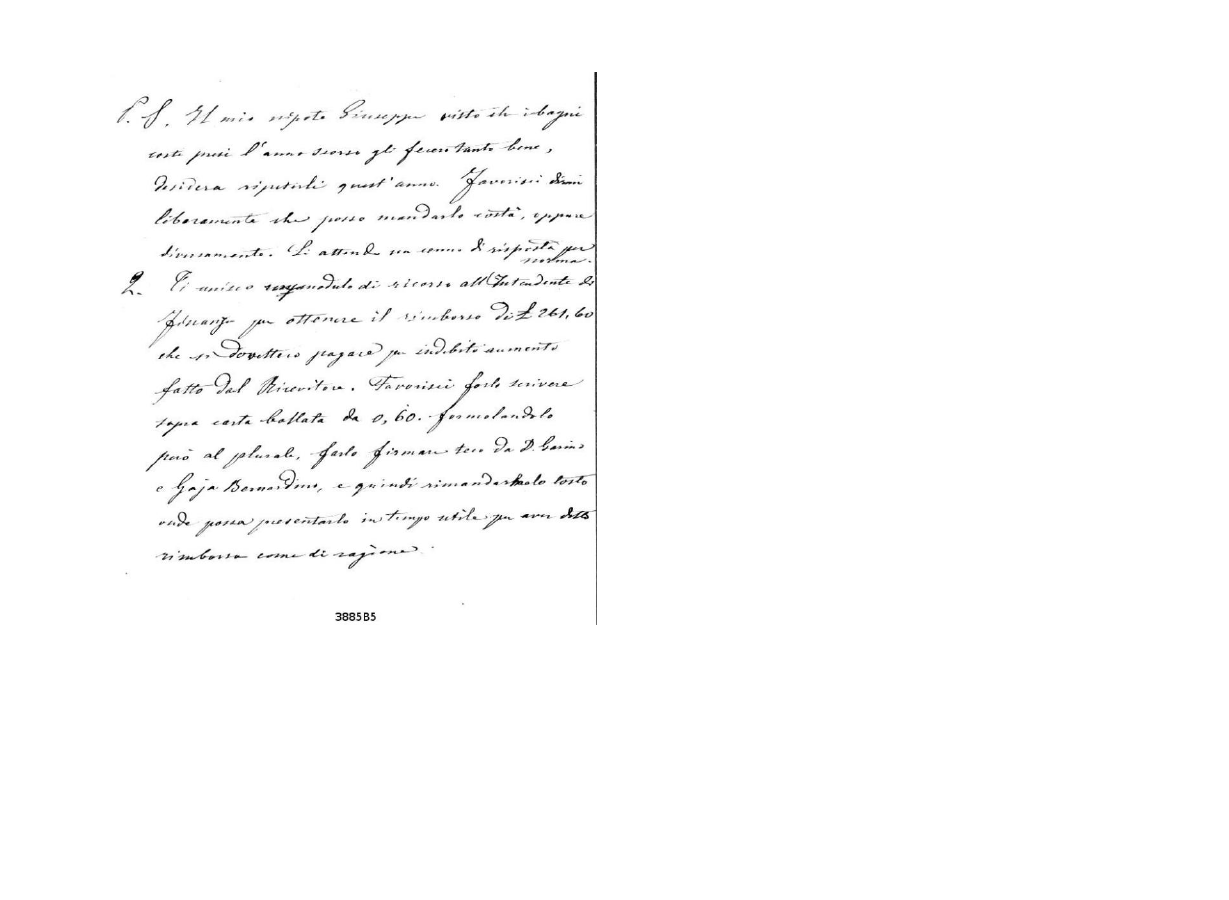 P. S. Il mio nipote Giuseppe visto che i bagni
costì presi l'anno scorso gli fecero tanto bene,
desidera ripeterli quest'anno. Favorisci dirmi
liberamente se posso mandarlo costà, oppure
diversamente. Si attende un cenno di risposta per
norma.
2. Ti unisco modulo di ricorso all'Intendente di
Finanza per ottenere il rimborso di £ 261,60
che si dovettero pagare per indebito aumento
fatto dal Ricevitore. Favorisci farlo scrivere
sopra carta bollata da 0,60. formolandolo
però al plurale, farlo firmare teco da D. Garino
e Gaja Bernardino, e quindi rimandarmelo tosto
onde possa presentarlo in tempo utile per aver detto
rimborso come di ragione.
3885B5